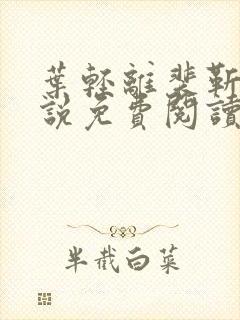 葉輕離裴靳
說免費閱讀
半截白菜